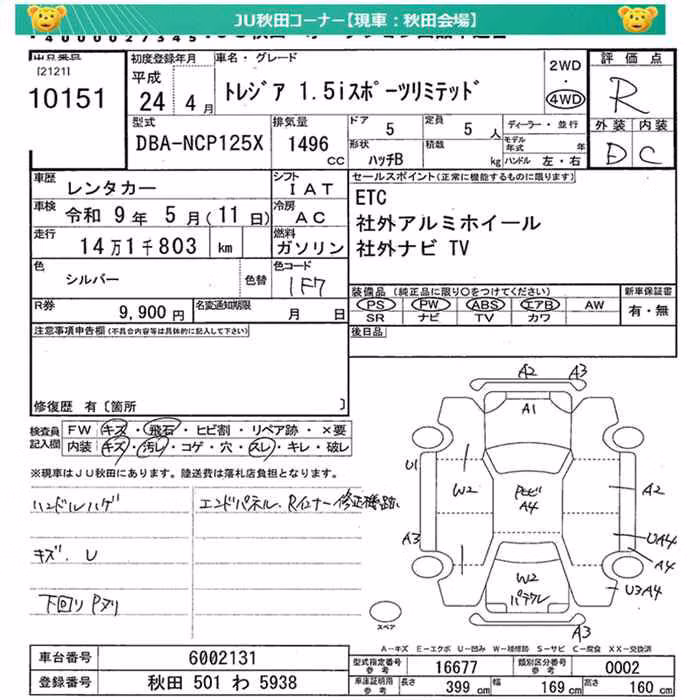 JU秋田コーナー【現車：秋田会場】
[2121]
10151
初度登録年月
平成
24 4月
車名・グレード
トレジア 1.5iスポーツリミテッド
2WD
・
4WD
評価点
R
型式
DBA-NCP125X
排気量
1496
CC
ドア
5
定員
5 人
形状
ハッチB
積載
kg
ディーラー・並行
モデル年式 年
ハンドル 左・右
外装 内装
D C
車歴
レンタカー
シフト
IAT
車検
令和 9年 5月(11日)
冷房
AC
走行
14万1千803 km
燃料
ガソリン
色
シルバー
色替
色コード
1F7
R券
9,900円
名変通知期限
月 日
セールスポイント(正常に機能するものに限ります)
ETC
社外アルミホイール
社外ナビ TV
装備品(純正品に限り○をつけてください)
新車保証書
PS PW ABS エアB AW
有・無
SR ナビ TV カワ
後日品
注意事項申告欄(不具合内容等は具体的に記入して下さい)
修復歴 有〔箇所 〕
検査員記入欄
FW キズ・飛石・ヒビ割・リペア跡・×要
内装 キズ・汚レ・コゲ・穴・スレ・キレ・破レ
※現車はJU秋田にあります。陸送費は落札店負担となります。
ハンドルハゲ
エンドパネル、Rインナー修正機跡、
キズ、U
下回りPヌリ
A2 A3
A1
U1
W2
A2
A4
A3
UA4
A4
W2
U3A4
A3
スペア
A-キズ E-エクボ U-凹み W-補修跡 S-サビ C-腐食 XX-交換済
車台番号
6002131
登録番号
秋田 501 わ 5938
型式指定番号
参考
16677
類別区分番号
参考
0002
車庫証明用
参考
長さ
399 cm
幅
169 cm
高さ
160 cm